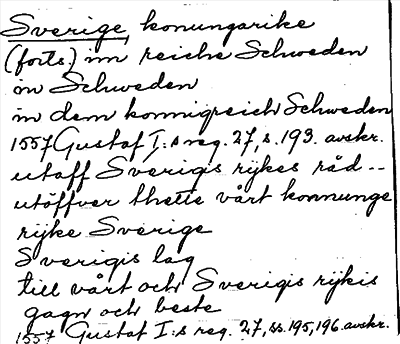 Sverige, konungarike
(forts.) im reiche Schweden
in Schweden
in dem konnigreich Schweden
1557 Gustaf I:s reg. 27, s. 193. avskr.
utaff Sverigis rykes råd --
utöffver thette vårt konnunge
rijke Sverige
Sverigis lag
till vårt och Sverigis rijkis
gagn och beste
1557 Gustaf I:s reg. 27, ss. 195, 196. avskr.